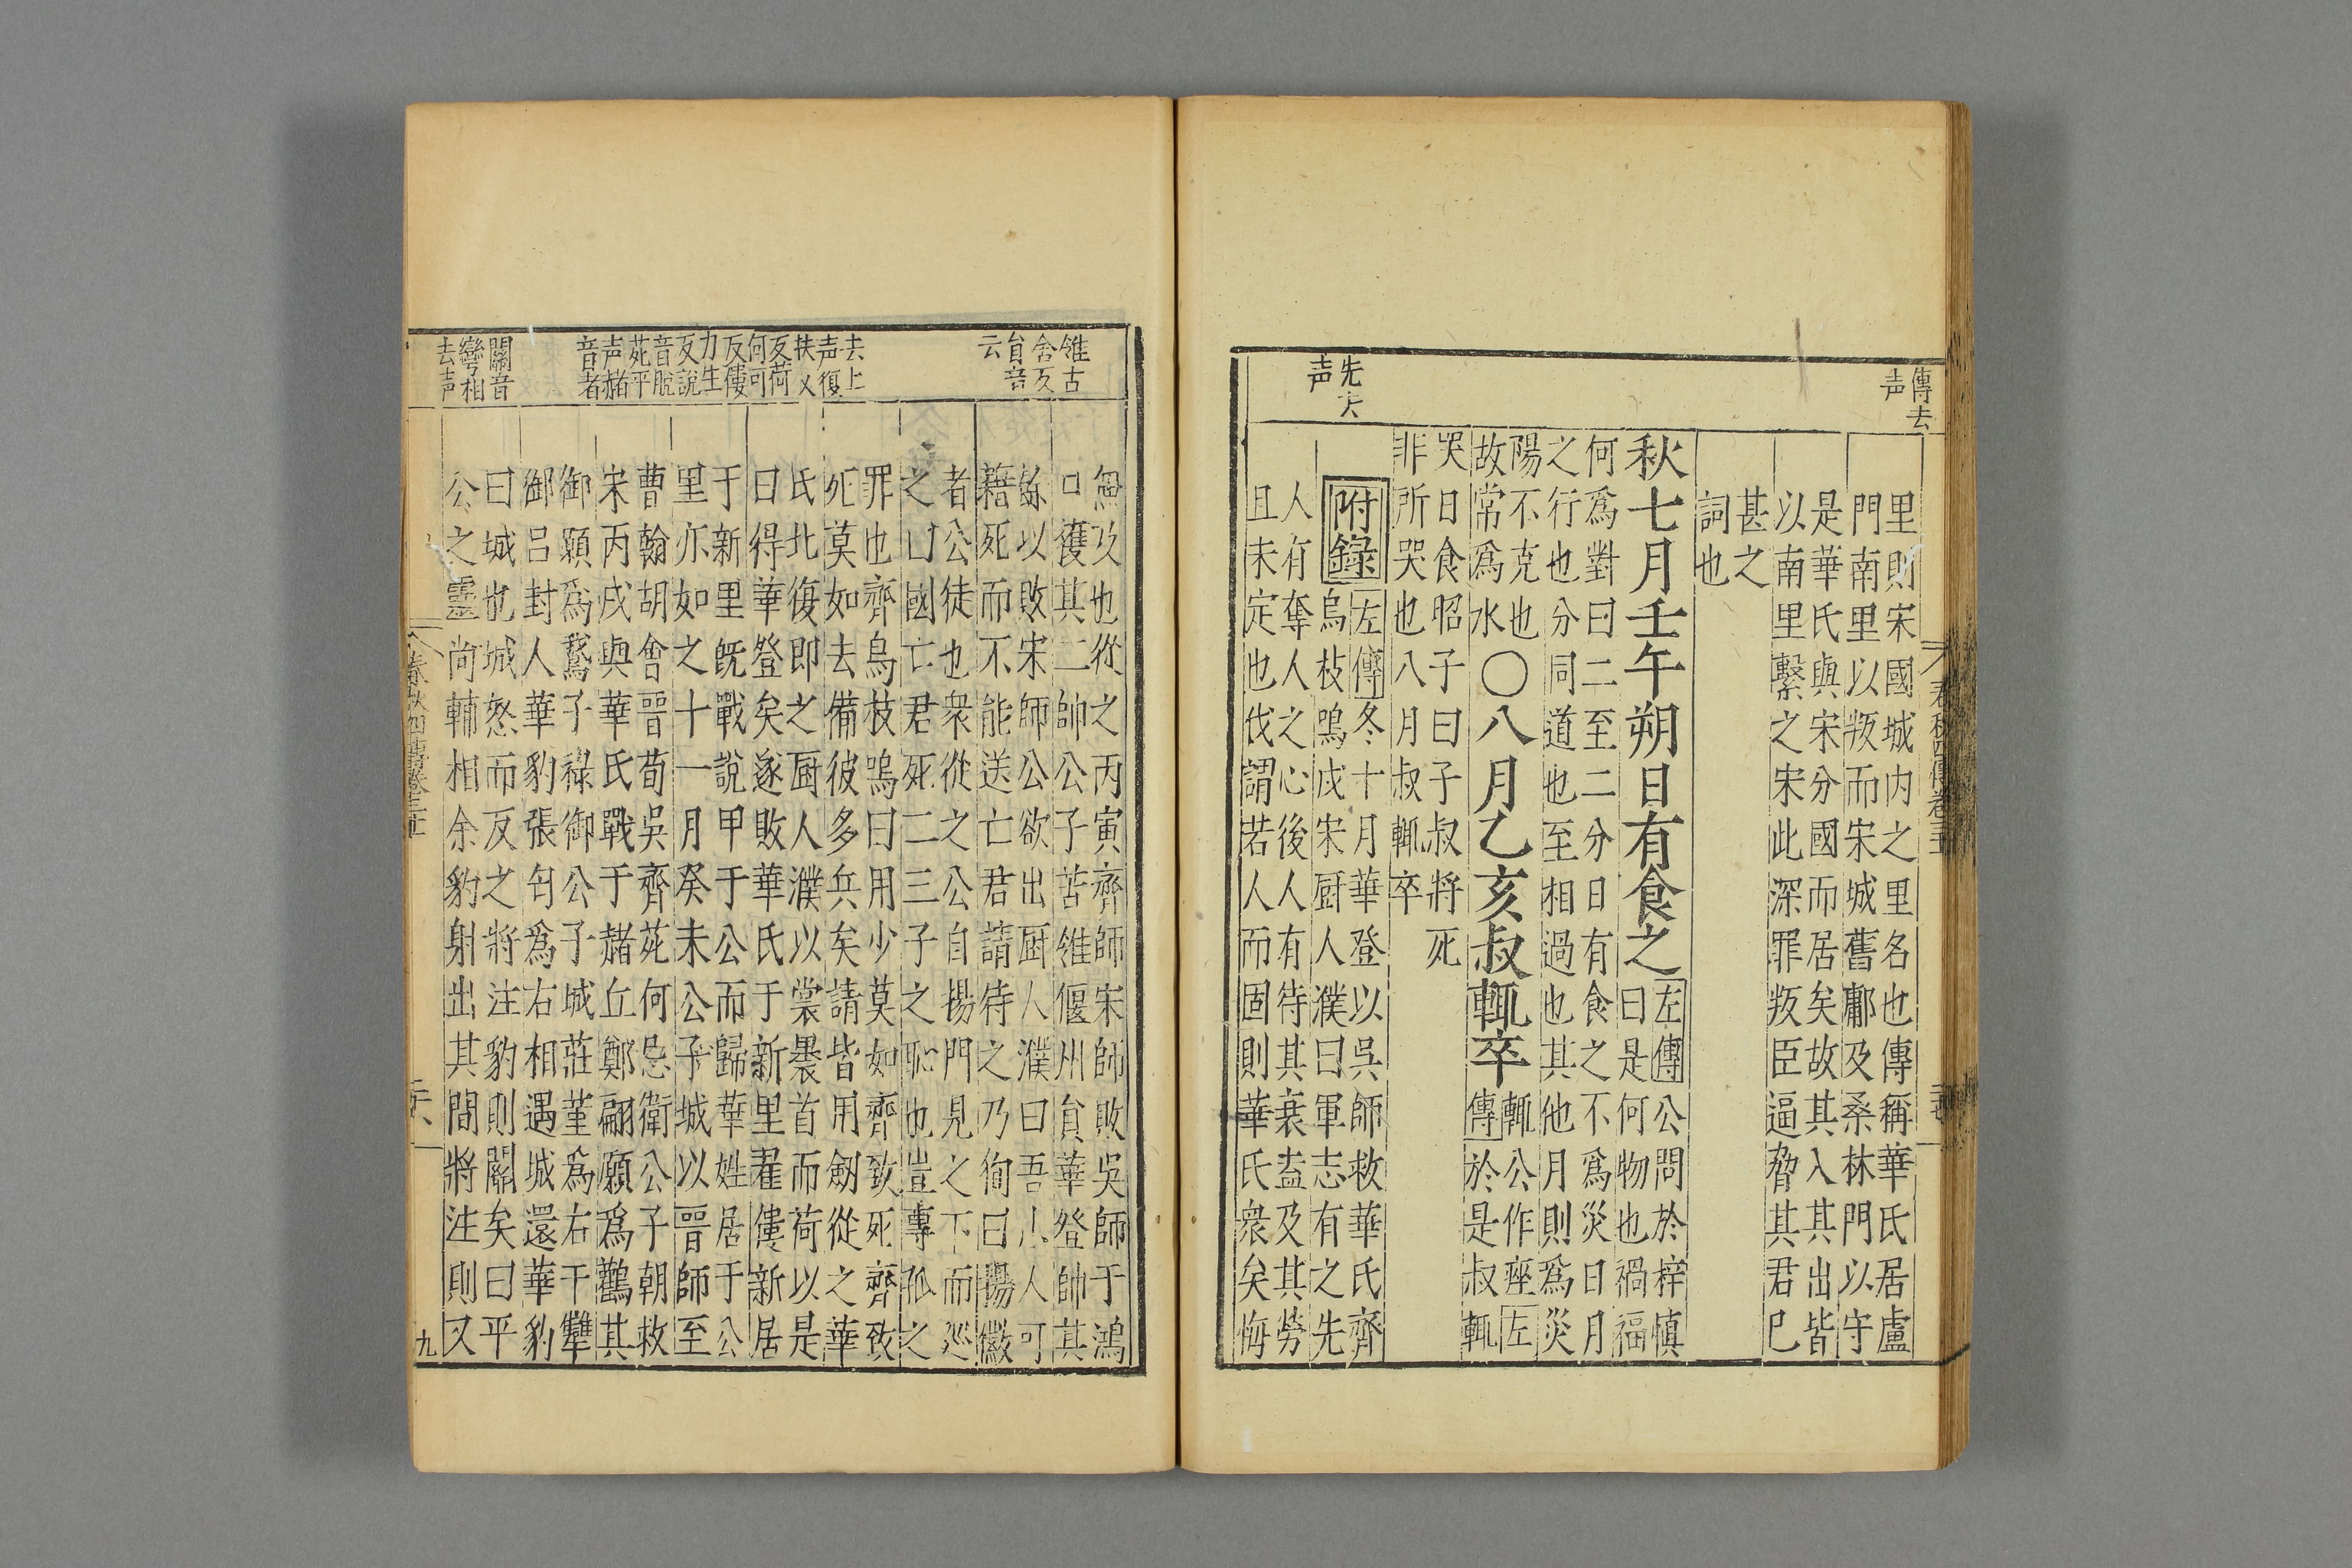 傳去
声
里則宋國城内之里名也傳稱華氏居盧
門南里以叛而宋城舊鄘及桑林門以守
是華氏與宋分國而居矣故其入其出皆
以南里繫之宋此深罪叛臣逼脅其君巳
甚之
詞也
秋七月壬午朔日有食之
左傳公問於梓慎
曰是何物也禍福
何爲對曰二至二分日有食之不爲災日月
之行也分同道也至相過也其他月則爲災
陽不克也
故常爲水
○八月乙亥叔輒卒
輒公作痤左
傳於是叔輒
哭日食昭子曰子叔將死
非所哭也八月叔輒卒
先去
声
附錄
左傳冬十月華登以吳師救華氏齊
烏枝鳴戍宋厨人濮曰軍志有之先
人有奪人之心後人有待其衰盍及其勞
且未定也伐諸若人人而固則華氏衆矣悔
春秋四傳卷三十五
雂古
含反
負音
云
去上
声復
扶又
反荷
何可
反僂
力生
反說
音脫
苑平
声赭
音者
關音
彎相
去声
無及也從之丙寅齊師宋師敗吳師于鴻
口獲其二帥公子苦雂偃州負華登帥其
餘以敗宋師公欲出厨人濮曰吾小人可
藉死而不能送亡君請待之乃徇曰揚徽
者公徒也衆從之公自揚門見之下而廵
之曰國亡君死二三子之恥也豈專孤之
罪也齊烏枝鳴曰用少莫如齊致死齊致
死莫如去備彼多兵矣請皆用劒從之華
氏北復即之厨人濮以裳裹首而荷以走
曰得華登矣遂敗華氏于新里翟僂新居
于新里旣戰說甲于公而歸華姓居于公
里亦如之十一月癸未公子城以晉師至
曹翰胡會晉荀吳齊苑何忌衛公子朝救
宋丙戌與華氏戰于赭丘鄭翩願爲鸛其
御願爲鵞子祿御公子城莊堇爲右干犫
御呂封人華豹張匄爲右相遇城還華豹
曰城也城怒而反之將注豹則關矣曰平
公之靈尚輔相余豹射出其間將注則又
春秋四傳卷三十五
九